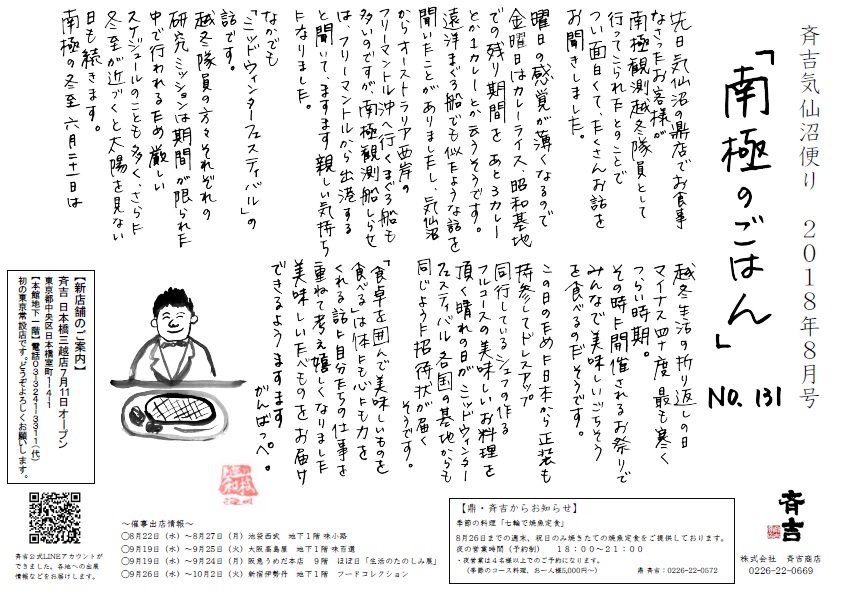 斉吉気仙沼便り　2018年8月号
「南極のごはん」
No. 131
先日気仙沼の鼎店でお食事
なさったお客様が
南極観測越冬隊員として
行ってこられたとのことで
つい面白くて、たくさんお話を
お聞きしました。
曜日の感覚が薄くなるので
金曜日はカレーライス、昭和基地
での残り期間を あと3カレー
とか1カレーとか云うそうです。
遠洋まぐろ船でも似たような話を
聞いたことがありましたし、気仙沼
からオーストラリア西岸の
フリーマントル沖へ行くまぐろ船も
多いのですが、南極観測船しらせ
は、フリーマントルから出港する
と聞いて、ますます親しい気持ち
になりました。
なかでも
「ミッドウィンターフェスティバル」の
話です。
越冬隊員の方々それぞれの
研究ミッションは期間が限られた
中で行われるため厳しい
スケジュールのことも多く、さらに
冬至が近づくと太陽を見ない
日も続きます。
南極の冬至 六月二十一日は
越冬生活の折り返しの日
マイナス四十度 最も寒く
つらい時期。
その時に開催されるお祭りで
みんなで美味しいごちそう
を食べるのだそうです。
この日のために日本から正装も
持参してドレスアップ
同行しているシェフの作る
フルコースの美味しいお料理を
頂く晴れの日がミッドウィンター
フェスティバル 各国の基地からも
同じように招待状が届く
そうです。
「食卓を囲んで美味しいものを
食べる」は体にも心にも力を
くれる話に自分たちの仕事を
重ねて考え嬉しくなりました
美味しいたべものをお届け
できるようますます
がんばっぺ。
【新店舗のご案内】
斉吉 日本橋三越店 7月11日オープン
東京都中央区日本橋室町1-4-1
【本館地下一階】電話03-3241-3311(代)
初の東京常設店です。どうぞよろしくお願いします。
斉吉公式LINEアカウントが
できました。各地への出展
情報などをお届けします。
～催事出店情報～
○8月22日（水）～8月27日（月）池袋西武　地下1階 味小路
○9月19日（水）～9月25日（火）大阪高島屋　地下1階 味百選
○9月19日（水）～9月24日（月）阪急うめだ本店　9階　ほぼ日「生活のたのしみ展」
○9月26日（水）～10月2日（火）新宿伊勢丹　地下1階　フードコレクション
【鼎・斉吉からお知らせ】
季節の料理「七輪で焼魚定食」
8月26日までの週末、祝日のみ焼きたての焼魚定食をご提供しております。
夜の営業時間（予約制）　18：00～21：00
・夜営業は4名様以上でのご予約になります。
（季節のコース料理、お一人様5,000円～）　鼎 斉吉：0226-22-0572
斉吉
株式会社　斉吉商店
0226-22-0669